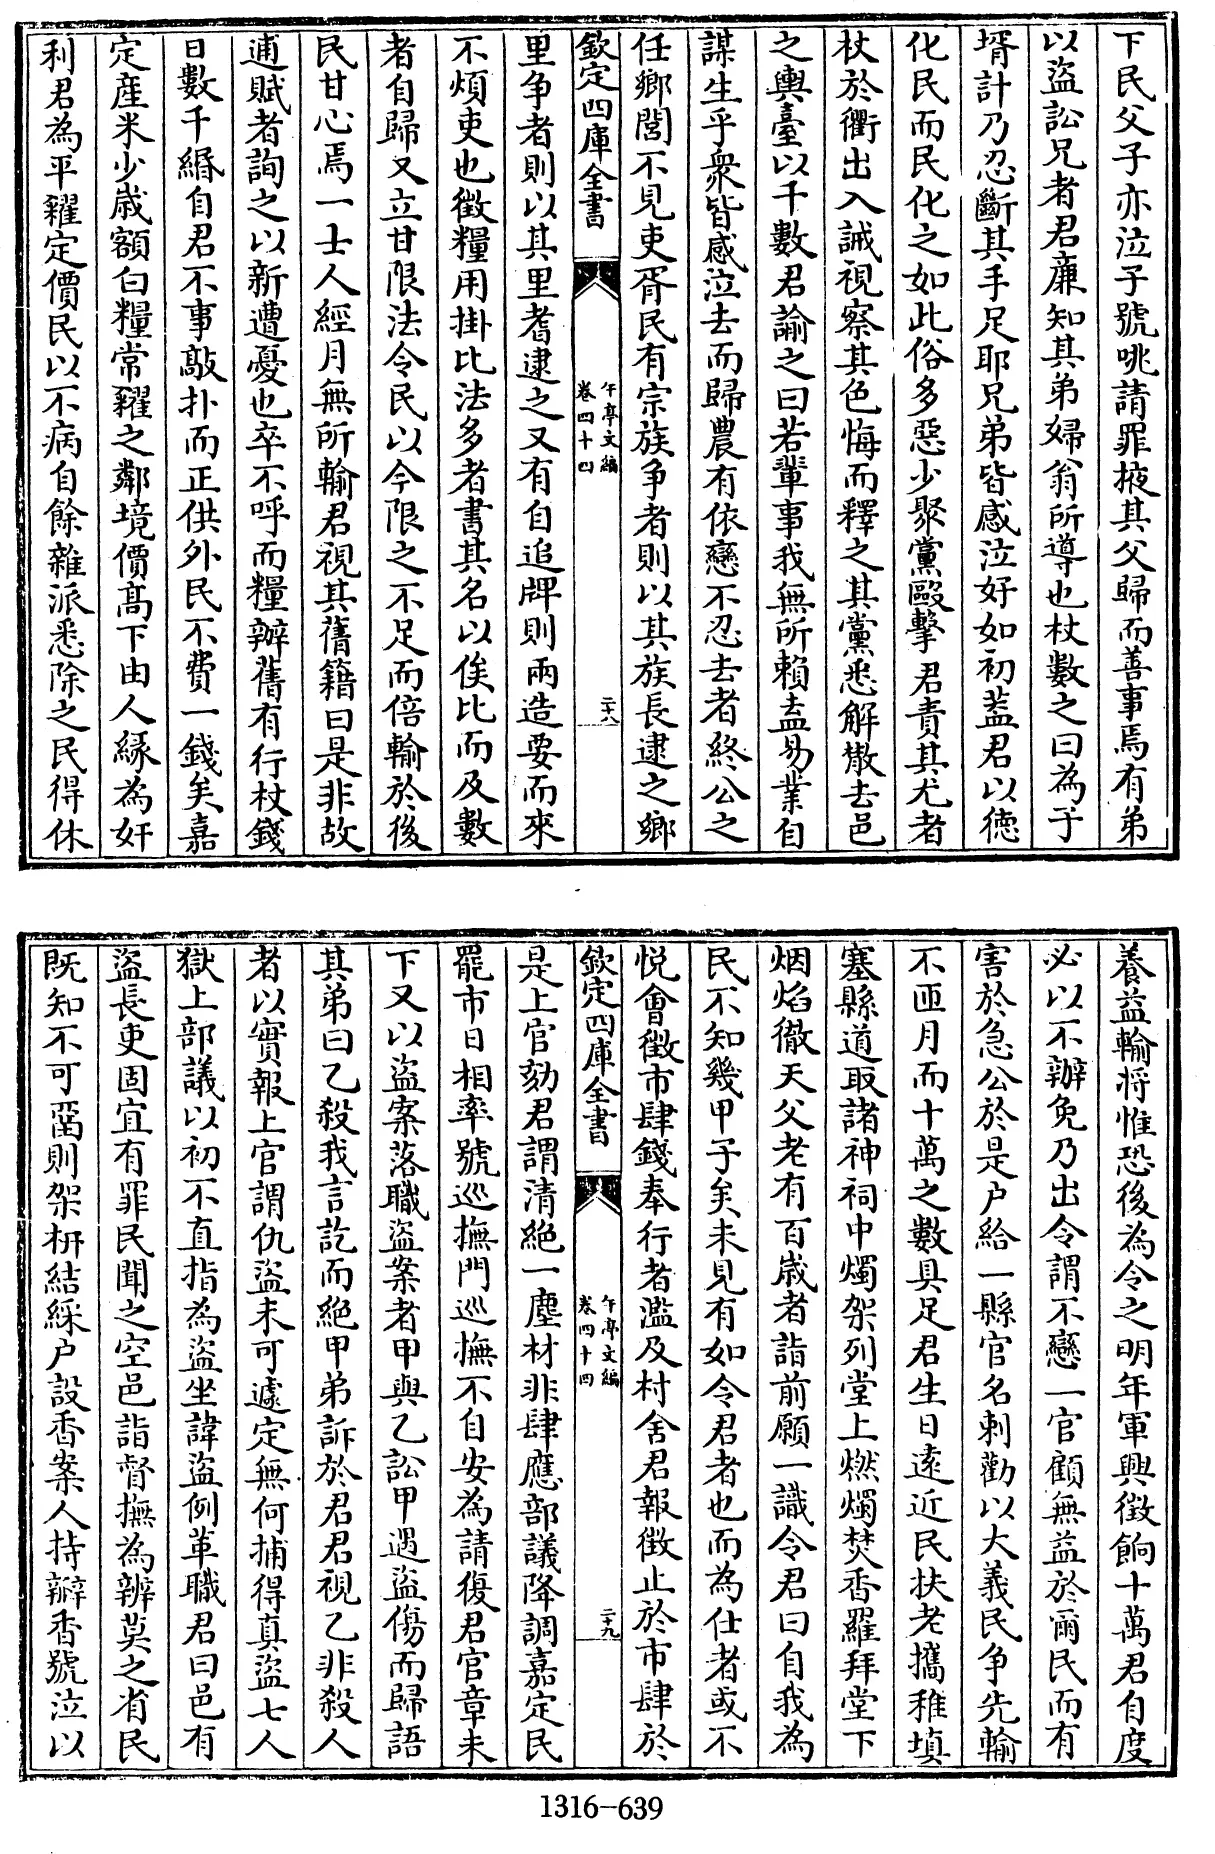 下民父子亦泣子號咷請罪掖其父歸而善事焉有弟
以盜訟兄者君亷知其弟婦翁所導也杖數之曰為子
壻計乃忍斷其手足耶兄弟皆感泣好如初葢君以德
化民而民化之如此俗多惡少聚黨毆擊君責其尤者
杖於衢出入誡視察其色悔而釋之其黨悉解散去邑
之輿臺以千數君諭之曰若輩事我無所賴盍易業自
謀生乎衆皆感泣去而歸農有依戀不忍去者終公之
任鄉閭不見吏胥民有宗族争者則以其族長逮之鄉
欽定四庫全書
午亭文編
卷四十四
二十八
里争者則以其里耆逮之又有自追牌則兩造要而來
不煩吏也徵糧用掛比法多者書其名以俟比而及數
者自歸又立甘限法令民以今限之不足而倍輸於後
民甘心焉一士人經月無所輸君視其舊籍曰是非故
逋賦者詢之以新遭憂也卒不呼而糧辦舊有行杖錢
日數千緡自君不事敲扑而正供外民不費一錢矣嘉
定產米少歲額白糧常糴之鄰境價髙下由人緣為奸
利君為平糴定價民以不病自餘雜派悉除之民得休
養益輸将惟恐後為令之明年軍興徵餉十萬君自度
必以不辦免乃出令謂不戀一官顧無益於爾民而有
害於急公於是户給一縣官名刺勸以大義民争先輸
不匝月而十萬之數具足君生日逺近民扶老攜稚填
塞縣道取諸神祠中燭架列堂上燃燭焚香羅拜堂下
烟焰徹天父老有百歲者詣前願一識令君曰自我為
民不知幾甲子矣未見有如令君者也而為仕者或不
悅會徵市肆錢奉行者濫及村舍君報徵止於市肆於
欽定四庫全書
午亭文編
卷四十四
二十九
是上官劾君謂清絶一塵材非肆應部議降調嘉定民
罷市日相率號廵撫門廵撫不自安為請復君官章未
下又以盜案落職盜案者甲與乙訟甲遇盜傷而歸語
其弟曰乙殺我言訖而絶甲弟訴於君君視乙非殺人
者以實報上官謂仇盜未可遽定無何捕得真盜七人
獄上部議以初不直指為盜坐諱盜例革職君曰邑有
盜長吏固宜有罪民聞之空邑詣督撫為辨莫之省民
既知不可啚則架枅結綵户設香案人持瓣香號泣以
1316-639